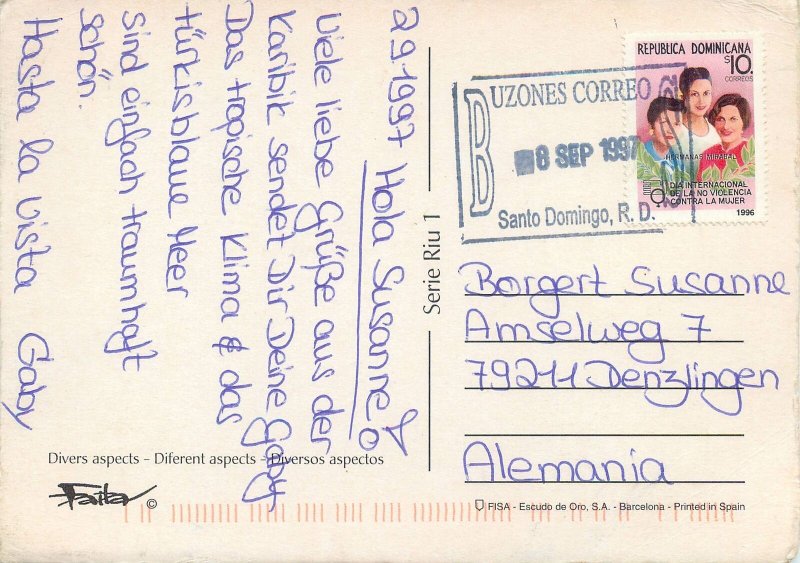 2.9.1997 Hola Susanne!
Viele liebe Grüße aus der
Karibik sendet Dir Deine Gaby.
Das tropische Klima & das
türkisblaue Meer
sind einfach traumhaft
schön.
Hasta la vista Gaby
Divers aspects – Diferent aspects – Diversos aspectos
Faita ©
Serie Riu 1
BUZONES CORREO
8 SEP 1997
Santo Domingo, R. D.
REPUBLICA DOMINICANA
$10.
CORREOS
HERMANAS MIRABAL
DIA INTERNACIONAL
DE LA NO VIOLENCIA
CONTRA LA MUJER
1996
Borgert Susanne
Amselweg 7
79211 Denzlingen
Alemania
FISA - Escudo de Oro, S.A. - Barcelona - Printed in Spain